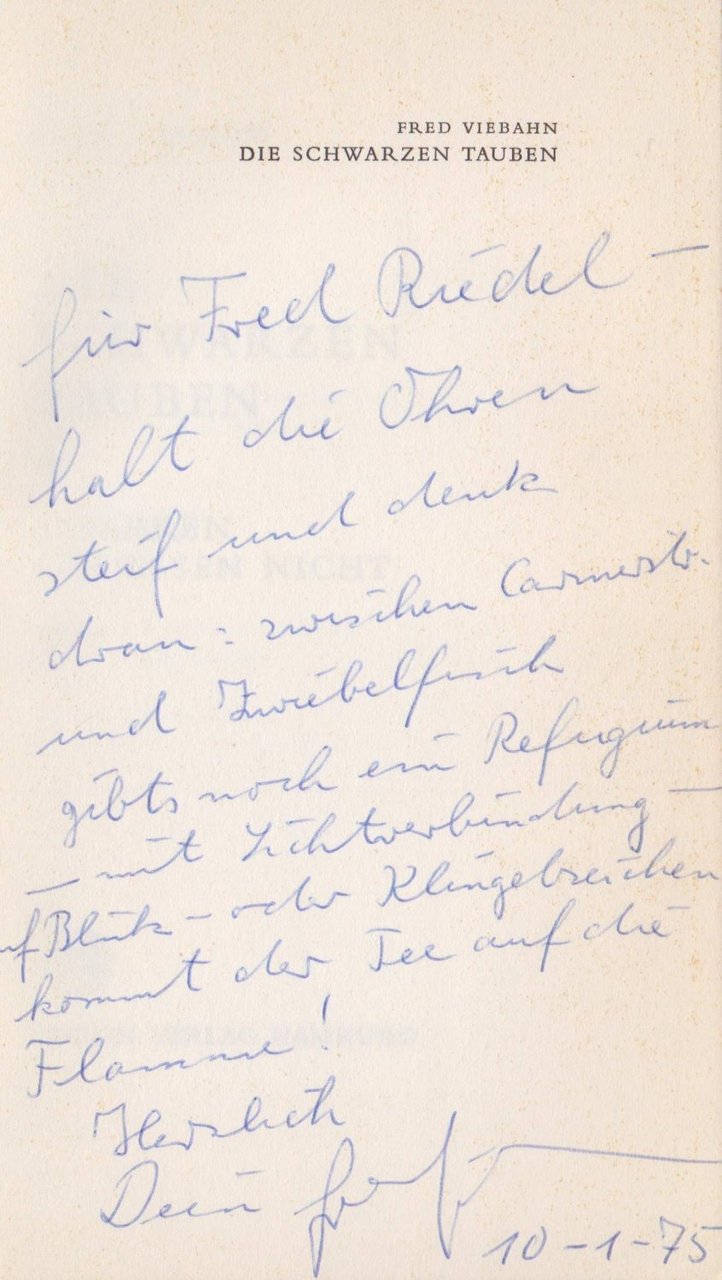 FRED VIEBAHN
DIE SCHWARZEN TAUBEN
für Fred Riedel —
halt die Ohren
steif und denk
dran: zwischen Carmerstr.
und Zwiebelfisch
gibts noch ein Refugium
— mit Lichtverbindung —
auf Blink- oder Klingelzeichen
kommt der Tee auf die
Flamme!
Herzlich
Dein
10-1-75